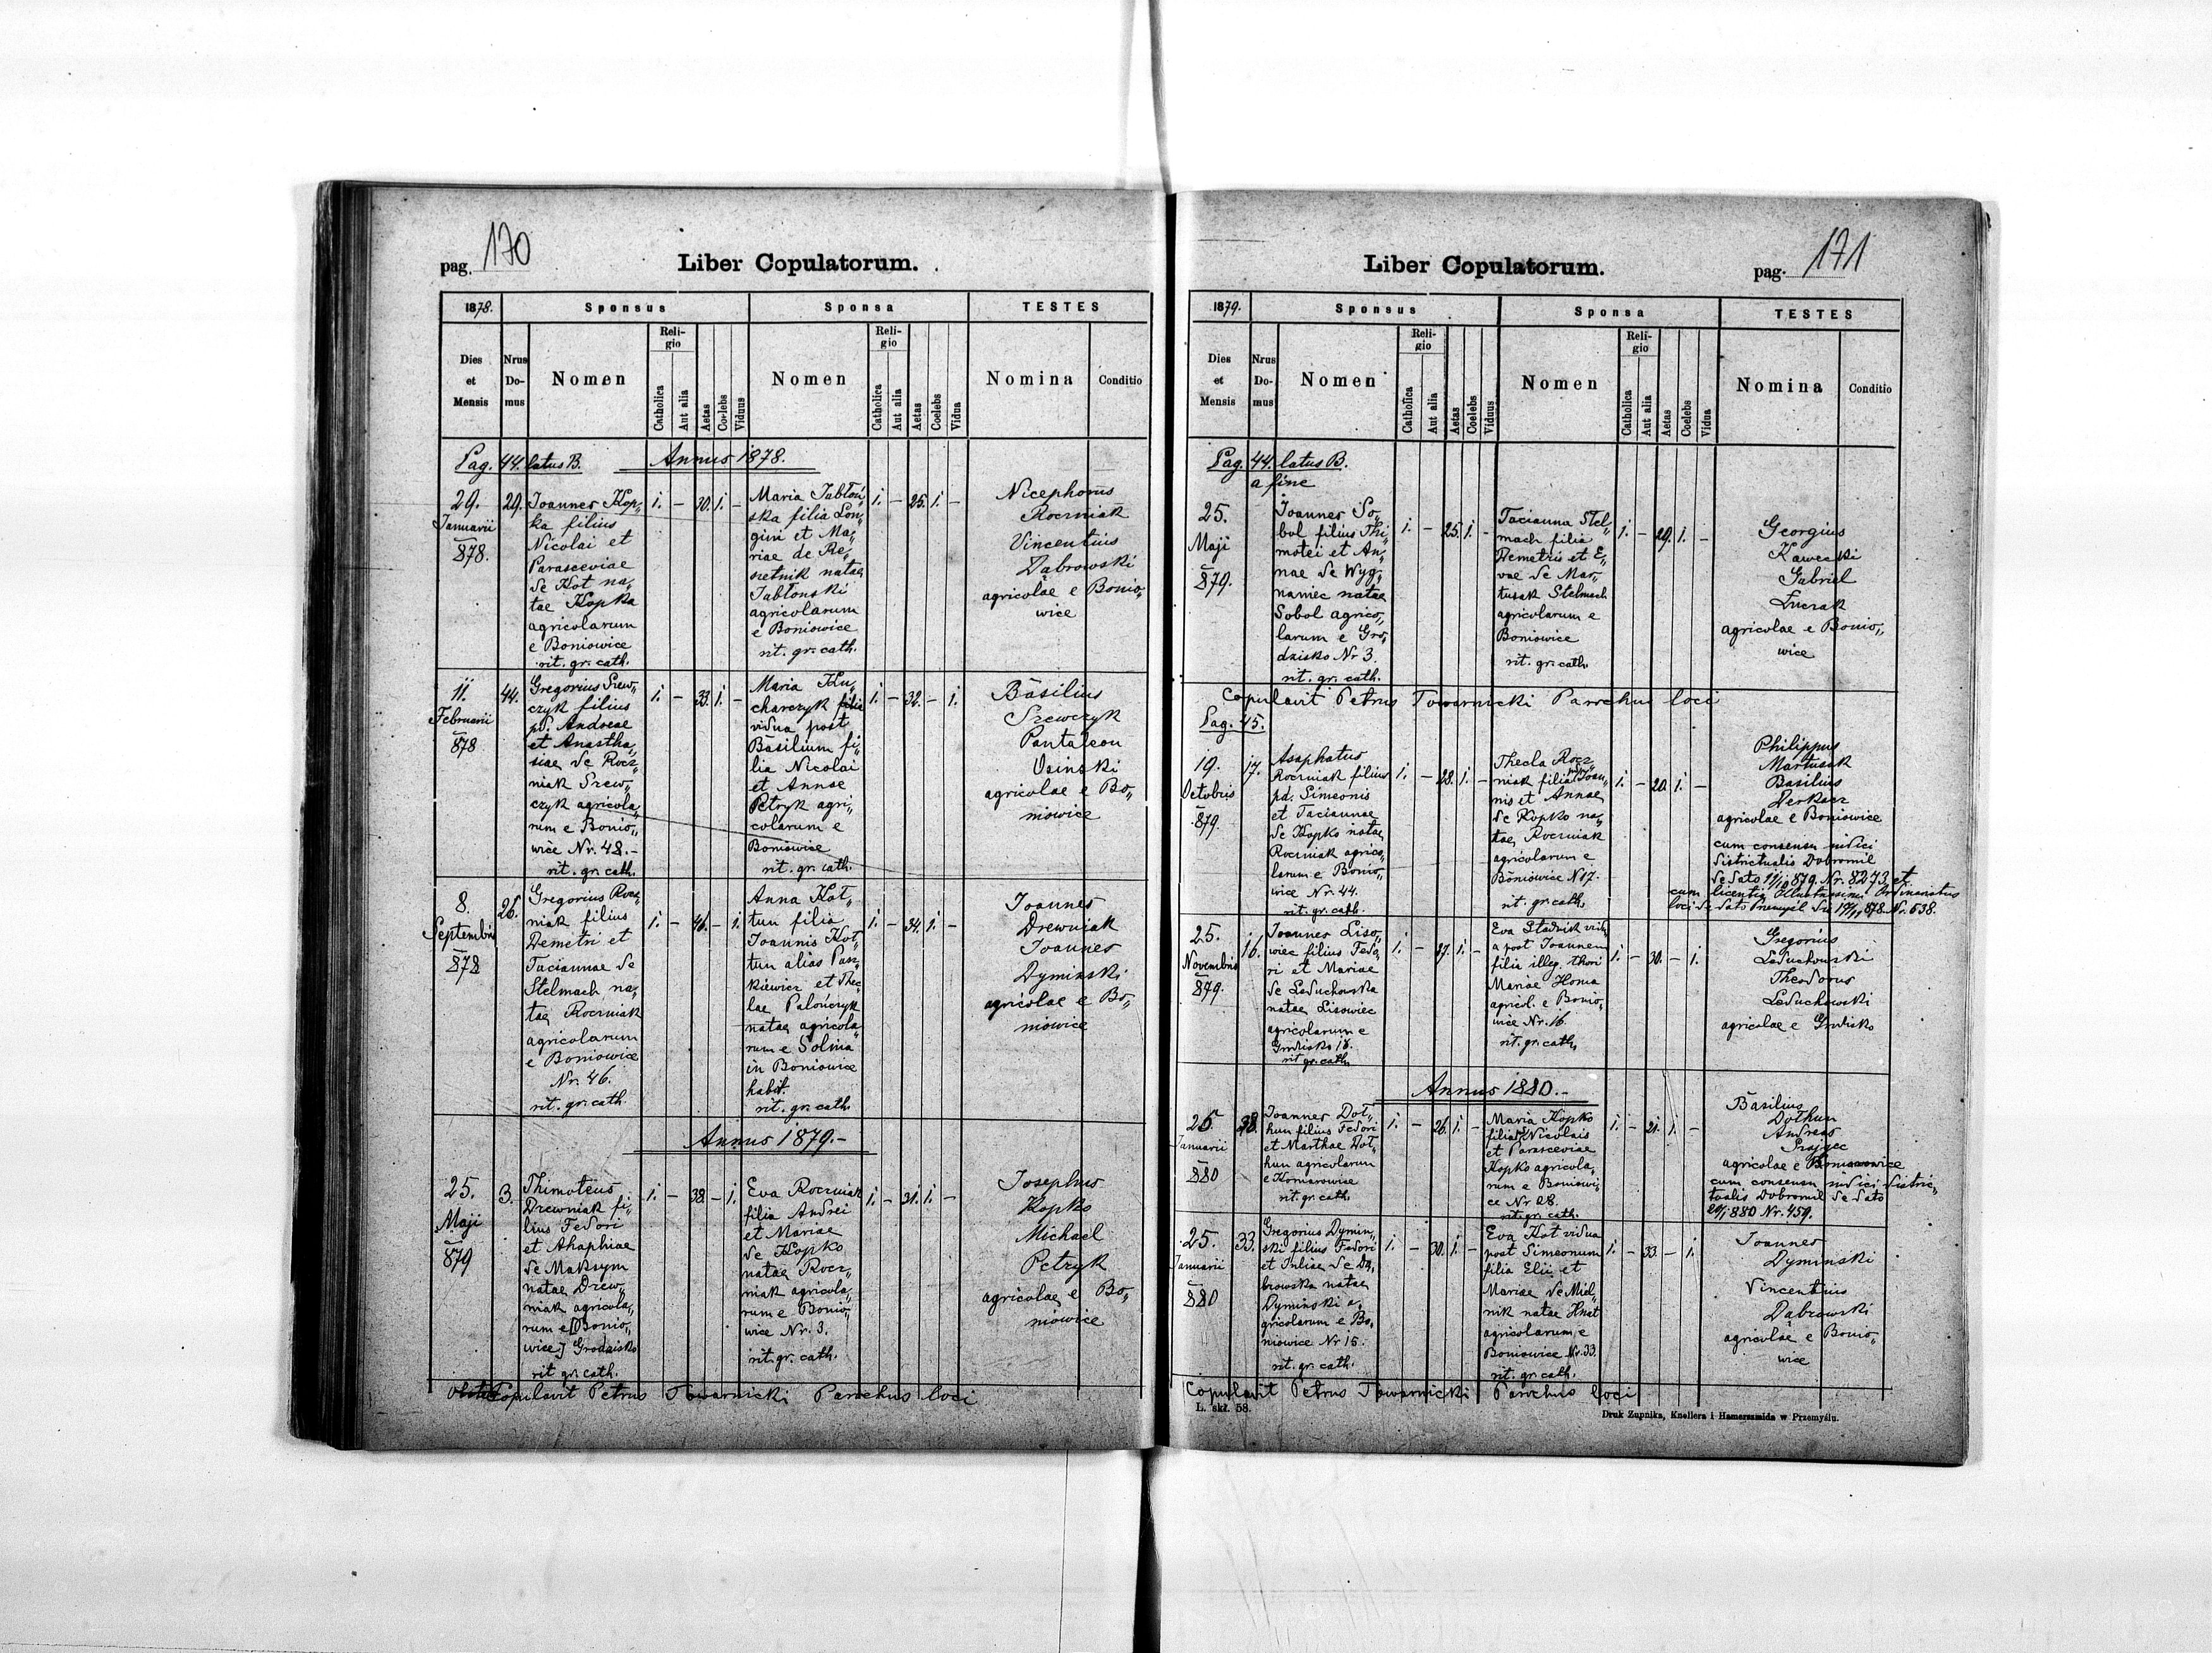 pag. 170
Liber Copulatorum.
1878.
Sponsus
Sponsa
TESTES
Dies et Mensis
Nrus Domus
Nomen
Religio
Catholica
Aut alia
Aetas
Coelebs
Viduus
Nomen
Religio
Catholica
Aut alia
Aetas
Coelebs
Vidua
Nomina
Conditio
Pag. 44. latus B. Annus 1878.
29.
Januarii
878.
29.
Joannes Kop„
ka filius
Nicolai et
Parasceviae
de Kot na„
tae Kopka
agricolarum
e Boniowice
rit. gr. cath.
i. — 30. i. —
Maria Jabłoń„
ska filia Lon„
gini et Ma„
riae de Re„
szetnik natae
Jabłonski
agricolarum
e Boniowice
rit. gr. cath.
i. — 25. i. —
Nicephorus
Roczniak
Vincentius
Dabrowski
agricolae e Bonio„
wice
11.
Februarii
878
44.
Gregorius Szew„
czyk filius
pd. Andreae
et Anastha„
siae de Rocz„
niak Szew„
czyk agricola„
rum e Bonio„
wice Nr. 48.-
rit. gr. cath.
i. — 33. i. —
Maria Ku„
charczyk filia
vidua post
Basilium fi„
lia Nicolai
et Annae
Petryk agri„
colarum e
Boniowice
rit. gr. cath.
i. — 32. — i.
Basilius
Szewczyk
Pantaleon
Usinski
agricolae e Bo„
niowice
8.
Septembris
878
26.
Gregorius Rocz„
niak filius
Demetri et
Taciannae de
Stelmach na„
tae Roczniak
agricolarum
e Boniowice
Nr. 46.
rit. gr. cath.
i. — 46. — i.
Anna Kot„
tun filia
Joannis Kot„
tun alias Pasz„
kiewicz et The„
clae Palończyk
natae agricola„
rum e Solina
in Boniowice
habit.
rit. gr. cath.
i. — 34. i. —
Joannes
Drewniak
Joannes
Dyminski
agricolae e Bo„
niowice
Annus 1879.-
25.
Maji
879
3.
Thimoteus
Drewniak fi„
lius Fedori
et Ahaphiae
de Maksym
natae Drew„
niak agricola„
rum e [Bonio„
wice] Grodzisko
rit. gr. cath.
i. — 38. — i.
Eva Roczniak
filia Andrei
et Mariae
de Kopko
natae Rocz„
niak agricola„
rum e Bonio„
wice Nr. 3.
rit. gr. cath.
i. — 31. i. —
Josephus
Kopko
Michael
Petryk
agricolae e Bo„
niowice
Copulavit Petrus Towarnicki Parochus loci
Liber Copulatorum.
pag. 171
1879.
Sponsus
Sponsa
TESTES
Dies et Mensis
Nrus Domus
Nomen
Religio
Catholica
Aut alia
Aetas
Coelebs
Viduus
Nomen
Religio
Catholica
Aut alia
Aetas
Coelebs
Vidua
Nomina
Conditio
Pag. 44. latus B.
a fine
25.
Maji
879.
Joannes So„
bol filius Thi„
motei et An„
nae de Wyg„
naniec natae
Sobol agrico„
larum e Gro„
dzisko Nr 3.
rit. gr. cath.
i. — 25. i. —
Tacianna Stel„
mach filia
Demetri et E„
vae de Mar„
tusak Stelmach
agricolarum e
Boniowice
rit. gr. cath.
i. — 29. i. —
Georgius
Kawecki
Gabriel
Łuczak
agricolae e Bonio„
wice
Copulavit Petrus Towarnicki Parochus loci
Pag. 45.
19.
Octobris
879.
17.
Asaphatus
Roczniak filius
pd. Simeonis
et Taciannae
de Kopko natae
Roczniak agrico„
larum e Bonio„
wice Nr. 44.
rit. gr. cath.
i. — 28. i. —
Thecla Rocz„
niak filia Joan„
nis et Annae
de Kopko na„
tae Roczniak
agricolarum e
Boniowice N 17.
rit. gr. cath.
i. — 20. i. —
Philippus
Martusak
Basilius
Derkacz
agricolae e Boniowice
cum consensu judici
districtualis Dobromil
de dato 879. Nr. 8273 et
cum licentia Illustrissimi Ordinariatus
loci de dato Przemyśl 878 No. 638.
25.
Novembris
879.
16.
Joannes Liso„
wiec filius Fedo„
ri et Mariae
de Leduchowska
natae Lisowiec
agricolarum e
Grodzisko 18.
rit. gr. cath.
i. — 27. i. —
Eva Stadnik vidu„
a post Joannem
filia illeg. thori
Mariae Homa
agricol. e Bonio„
wice Nr. 16.
rit. gr. cath.
i. — 30. — i.
Gregorius
Leduchowski
Theodorus
Leduchowski
agricolae e Grodzisko
Annus 1880.-
25
Januarii
880
28.
Joannes Dot„
hun filius Fedori
et Marthae Dot„
hun agricolarum
e Komarowice
rit. gr. cath.
i. — 26. i. —
Maria Kopko
filia Nicolais
et Parasceviae
Kopko agricola„
rum e Boniowi„
ce Nr 28.
rit. gr. cath.
i. — 21. i. —
Basilius
Dothun
Andreas
Prajzec
agricolae e
cum consensu judici distric„
tualis Dobromil de dato
880 Nr. 459.
25.
Januarii
880
33.
Gregorius Dymin„
ski filius Fedori
et Juliae de Da„
browska natae
Dyminski a„
gricolarum e Bo„
niowice Nr 15.
rit. gr. cath.
i. — 30. i. —
Eva Kot vidua
post Simeonum
filia Elii et
Mariae de Miel„
nik natae Hnat
agricolarum e
Boniowice Nr. 33.
rit. gr. cath.
i. — 33. — i.
Joannes
Dyminski
Vincentius
Dabrowski
agricolae e Bonio„
wice
Copulavit Petrus Towarnicki Parochus loci
L. skł. 58.
Druk Zupnika, Knollera i Hamerszmida w Przemyślu.